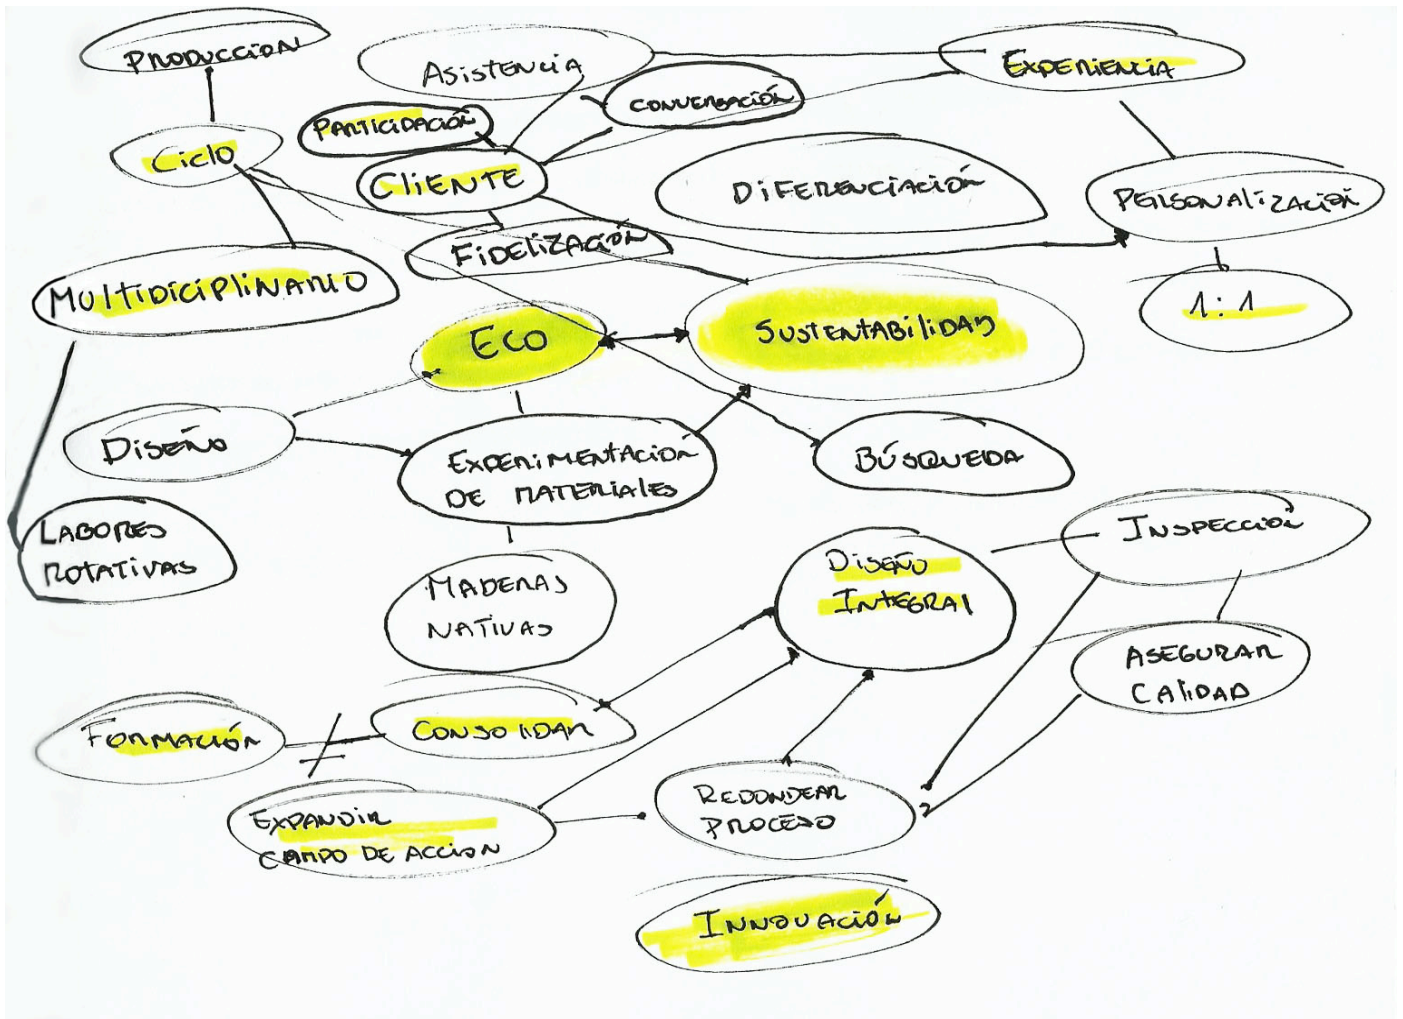 PRODUCCION
ASISTENCIA
EXPERIENCIA
CONVERSACIÓN
PARTICIPACIÓN
CICLO
CLIENTE
DIFERENCIACIÓN
PERSONALIZACIÓN
FIDELIZACIÓN
MULTIDICIPLINARIO
1:1
ECO
SUSTENTABILIDAD
DISEÑO
EXPERIMENTACIÓN
DE MATERIALES
BÚSQUEDA
LABORES
ROTATIVAS
INSPECCIÓN
DISEÑO
INTEGRAL
MADERAS
NATIVAS
ASEGURAR
CALIDAD
FORMACIÓN
CONSOLIDAR
REDONDEAR
PROCESO
EXPANDIR
CAMPO DE ACCION
INNOVACIÓN